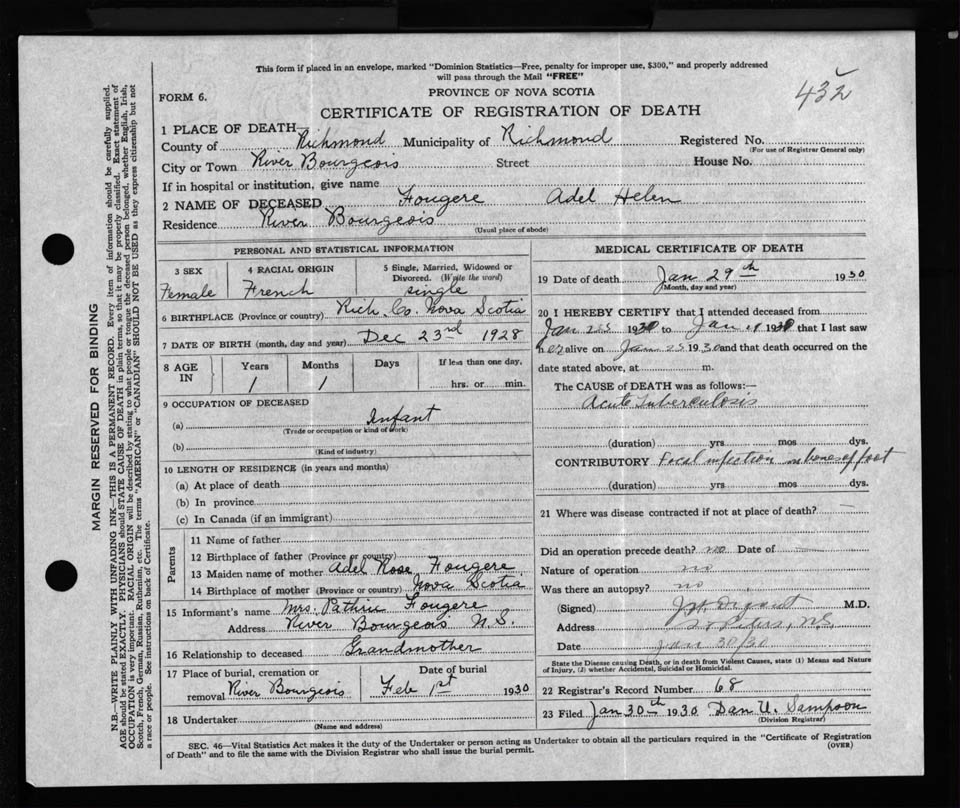 This form if placed in an envelope, marked "Dominion Statistics—Free, penalty for improper use, $300," and properly addressed
will pass through the Mail "FREE"
432
FORM 6.
PROVINCE OF NOVA SCOTIA
CERTIFICATE OF REGISTRATION OF DEATH
1 PLACE OF DEATH
County of Richmond Municipality of Richmond Registered No.
(For use of Registrar General only)
City or Town River Bourgeois Street House No.
If in hospital or institution, give name
2 NAME OF DECEASED Fougere Adel Helen
Residence River Bourgeois
(Usual place of abode)
PERSONAL AND STATISTICAL INFORMATION
3 SEX 4 RACIAL ORIGIN 5 Single, Married, Widowed or
Divorced. (Write the word)
Female French single
6 BIRTHPLACE (Province or country) Rich. Co. Nova Scotia
7 DATE OF BIRTH (month, day and year) Dec 23rd 1928
8 AGE IN Years Months Days If less than one day,
1 1 hrs. or min.
9 OCCUPATION OF DECEASED
(a) Infant
(Trade or occupation or kind of work)
(b)
(Kind of industry)
10 LENGTH OF RESIDENCE (in years and months)
(a) At place of death
(b) In province
(c) In Canada (if an immigrant)
Parents
11 Name of father
12 Birthplace of father (Province or country)
13 Maiden name of mother Adel Rose Fougere
14 Birthplace of mother (Province or country) Nova Scotia
15 Informant's name Mrs. Fougere
Address River Bourgeois N.S.
16 Relationship to deceased Grandmother
17 Place of burial, cremation or Date of burial
removal River Bourgeois Feb 1st 1930
18 Undertaker
(Name and address)
MEDICAL CERTIFICATE OF DEATH
19 Date of death Jan 29th 1930
(Month, day and year)
20 I HEREBY CERTIFY that I attended deceased from
Jan 1930 to Jan 1930 that I last saw
her alive on Jan 1930 and that death occurred on the
date stated above, at m.
The CAUSE OF DEATH was as follows:—
Acute Tuberculosis
(duration) yrs mos dys.
CONTRIBUTORY Focal infection in bones of foot
(duration) yrs. mos dys.
21 Where was disease contracted if not at place of death?
Did an operation precede death? no Date of
Nature of operation no
Was there an autopsy? no
(Signed) M.D.
Address St Peters, N.S.
Date Jan 30/30
State the Disease causing Death, or in death from Violent Causes, state (1) Means and Nature
of Injury, (2) whether Accidental, Suicidal or Homicidal.
22 Registrar's Record Number 68
23 Filed Jan 30th 1930 Dan U. Sampson
(Division Registrar)
SEC. 46—Vital Statistics Act makes it the duty of the Undertaker or person acting as Undertaker to obtain all the particulars required in the "Certificate of Registration
of Death" and to file the same with the Division Registrar who shall issue the burial permit.
(OVER)
MARGIN RESERVED FOR BINDING
N.B.—WRITE PLAINLY WITH UNFADING INK—THIS IS A PERMANENT RECORD. Every item of information should be carefully supplied.
AGE should be stated EXACTLY. PHYSICIANS should STATE CAUSE OF DEATH in plain terms, so that it may be properly classified. Exact statement of
OCCUPATION is very important. RACIAL ORIGIN will be described by stating to what people or tongue the deceased person belonged, whether English, Irish,
Scotch, French, German, Russian, Ruthenian, etc. The terms "AMERICAN" or "CANADIAN" SHOULD NOT BE USED as they express citizenship but not
a race or people. See instructions on back of Certificate.